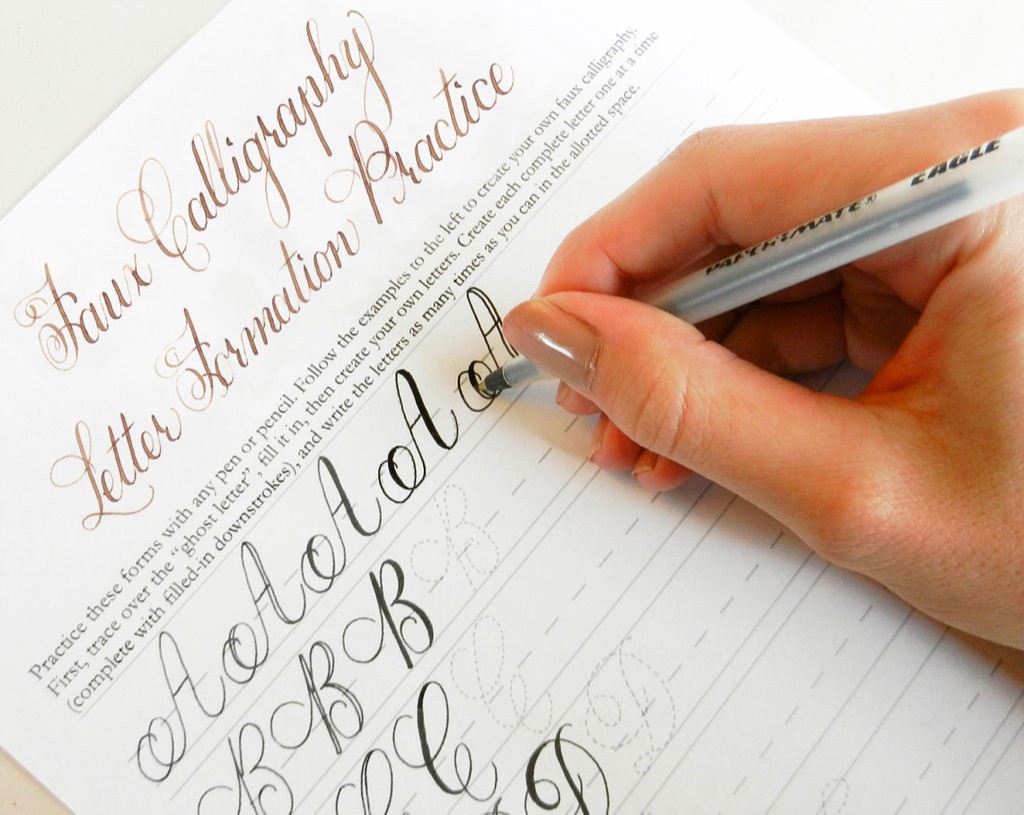 Faux Calligraphy
Letter Formation Practice
Practice these forms with any pen or pencil. Follow the examples to the left to create your own faux calligraphy.
First, trace over the "ghost letter", fill it in, then create your own letters. Create each complete letter one at a time
(complete with filled-in downstrokes), and write the letters as many times as you can in the allotted space.
A A A A A
B B B B
C C C
D D
PAPER MATE® EAGLE